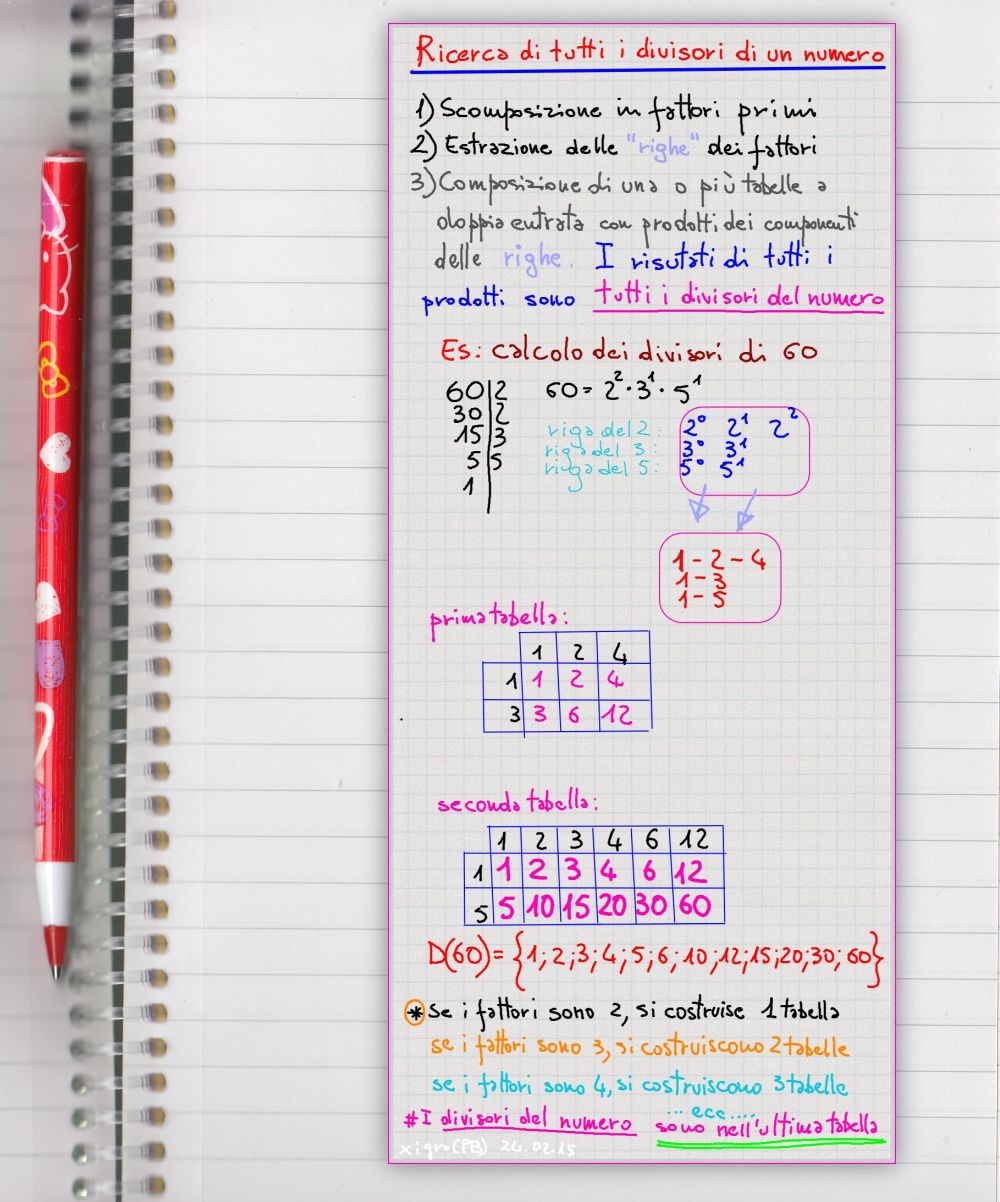 Ricerca di tutti i divisori di un numero
1) Scomposizione in fattori primi
2) Estrazione delle "righe" dei fattori
3) Composizione di una o più tabelle a
doppia entrata con prodotti dei componenti
delle righe. I risutati di tutti i
prodotti sono tutti i divisori del numero
Es: calcolo dei divisori di 60
60|2 60 = 2²·3¹·5¹
30|2
15|3
5|5
1|
riga del 2: 2⁰ 2¹ 2²
riga del 3: 3⁰ 3¹
riuga del 5: 5⁰ 5¹
1-2-4
1-3
1-5
prima tabella:
1 2 4
1 1 2 4
3 3 6 12
seconda tabella:
1 2 3 4 6 12
1 1 2 3 4 6 12
5 5 10 15 20 30 60
D(60)= {1;2;3;4;5;6;10;12;15;20;30;60}
* Se i fattori sono 2, si costruise 1 tabella
se i fattori sono 3, si costruiscono 2 tabelle
se i fattori sono 4, si costruiscono 3 tabelle
... ecc....
# I divisori del numero sono nell'ultima tabella
xigro(PB) 24.02.15